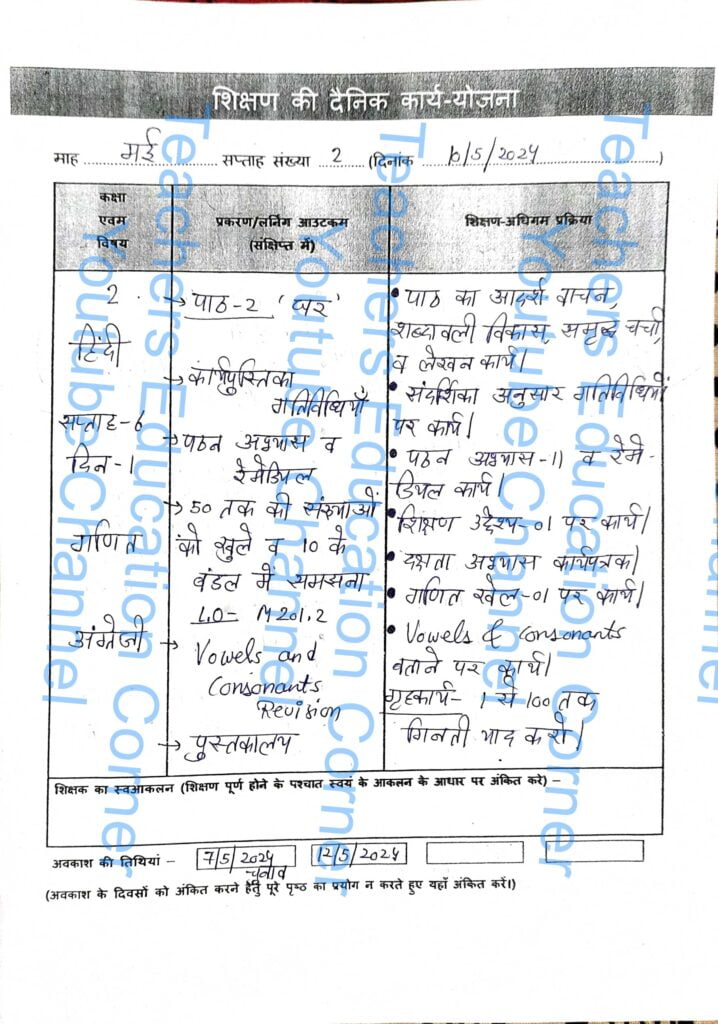 शिक्षण की दैनिक कार्य-योजना
माह मई सप्ताह संख्या 2 (दिनांक 10/5/2024)
कक्षा
एवम
विषय
प्रकरण/लर्निंग आउटकम
(संक्षिप्त में)
शिक्षण-अधिगम प्रक्रिया
2
हिंदी
सप्ताह-6
दिन-1
गणित
अंग्रेजी
→ पाठ-2 'घर'
→ कार्यपुस्तिका
गतिविधियाँ
→ पठन अभ्यास व
रेमेडियल
→ 50 तक की संख्याओं
को खुले व 10 के
बंडल में समझना
LO- M201.2
→ Vowels and
Consonants
Revision
→ पुस्तकालय
• पाठ का आदर्श वाचन,
शब्दावली विकास, समृद्ध चर्चा,
व लेखन कार्य।
• संदर्शिका अनुसार गतिविधियों
पर कार्य।
• पठन अभ्यास-11 व रेमे-
डियल कार्य।
• शिक्षण उद्देश्य-01 पर कार्य।
• दक्षता अभ्यास कार्यपत्रक।
• गणित खेल-01 पर कार्य।
• Vowels & consonants
बताने पर कार्य।
गृहकार्य- 1 से 100 तक
गिनती याद करो।
शिक्षक का स्वआकलन (शिक्षण पूर्ण होने के पश्चात स्वयं के आकलन के आधार पर अंकित करे) –
अवकाश की तिथियां – 7/5/2024 12/5/2024
चुनाव
(अवकाश के दिवसों को अंकित करने हेतु पूरे पृष्ठ का प्रयोग न करते हुए यहाँ अंकित करें।)
Teachers Education Corner
Youtube Channel
Teachers Education Corner
Youtube Channel
Teachers Education Corner
Youtube Channel